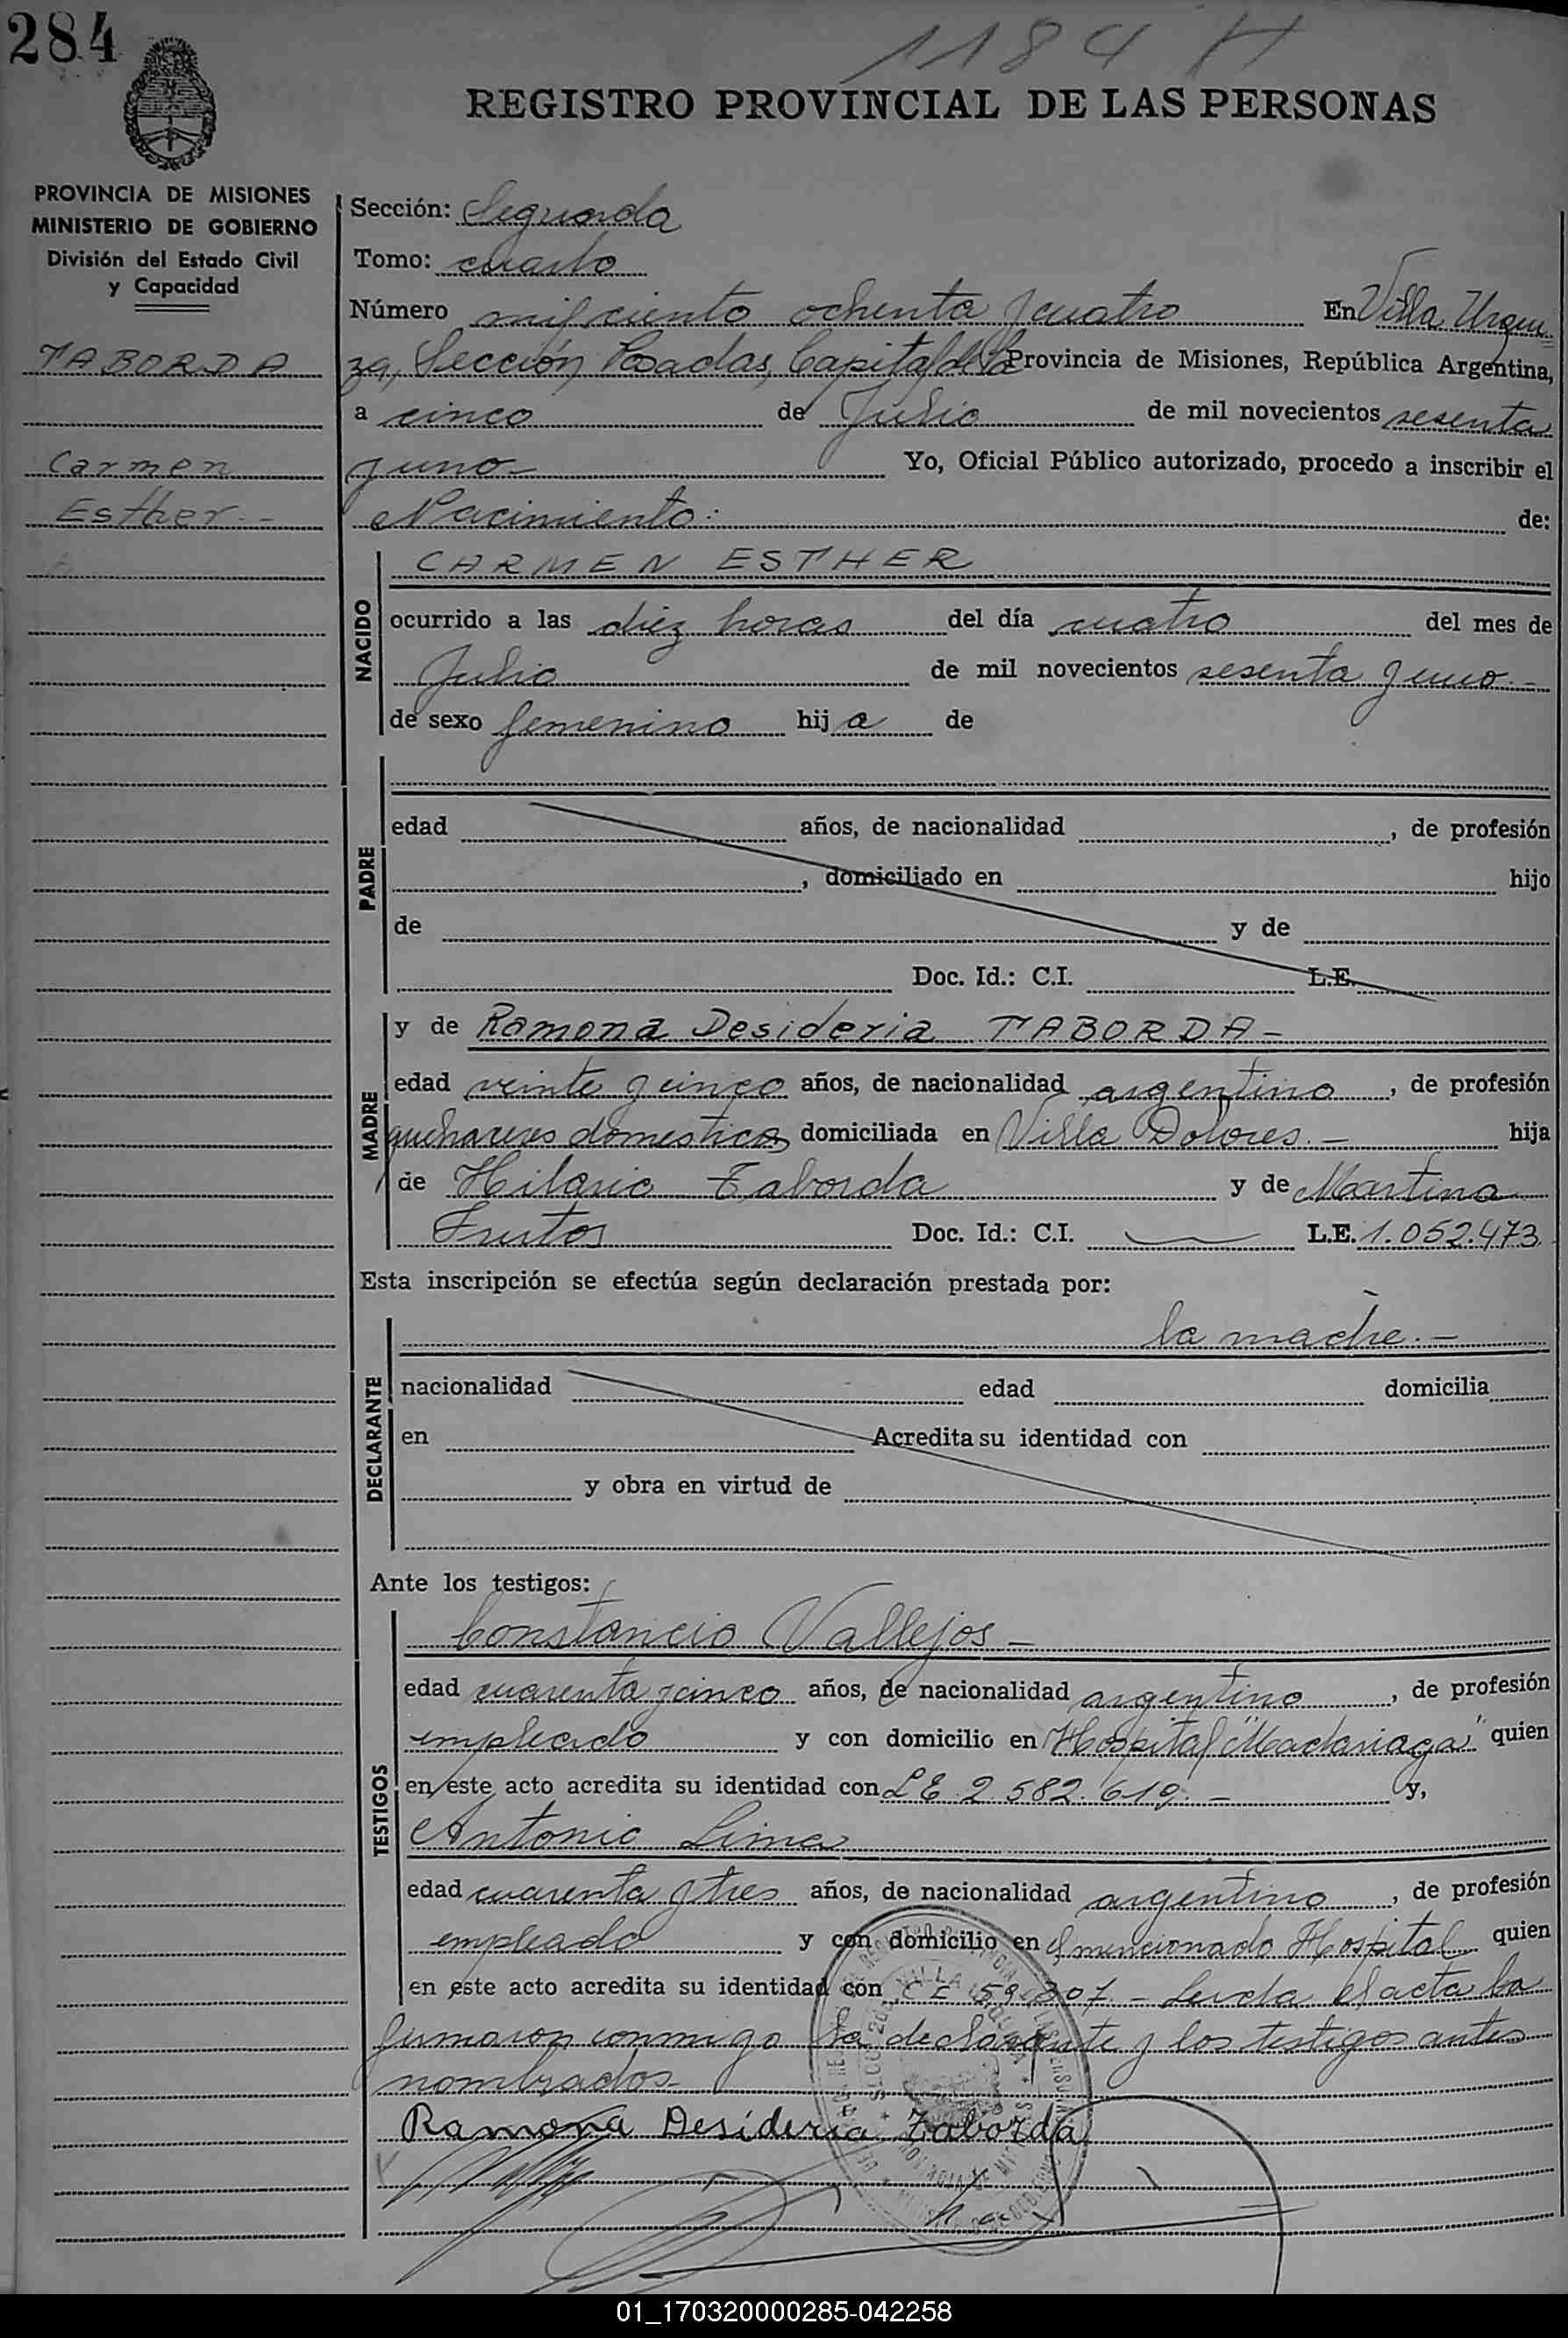 284
1184 H
REGISTRO PROVINCIAL DE LAS PERSONAS
PROVINCIA DE MISIONES
MINISTERIO DE GOBIERNO
División del Estado Civil
y Capacidad
TABORDA
Carmen
Esther.-
Sección: Segunda
Tomo: cuarto
Número mil ciento ochenta y cuatro En Villa Urqui
za, Sección Posadas, Capital de la Provincia de Misiones, República Argentina,
a cinco de Julio de mil novecientos sesenta
y uno- Yo, Oficial Público autorizado, procedo a inscribir el
Nacimiento: de:
NACIDO
CARMEN ESTHER
ocurrido a las diez horas del día cuatro del mes de
Julio de mil novecientos sesenta y uno.-
de sexo femenino hij a de
PADRE
edad años, de nacionalidad , de profesión
, domiciliado en hijo
de y de
Doc. Id.: C.I. L.E.
MADRE
y de Ramona Desideria TABORDA-
edad veinte y cinco años, de nacionalidad argentino, de profesión
quehaceres domesticos domiciliada en Villa Dolores.- hija
de Hilario Taborda y de Martina
Frutos Doc. Id.: C.I. L.E. 1.052.473.
Esta inscripción se efectúa según declaración prestada por:
DECLARANTE
la madre.-
nacionalidad edad domicilia
en Acredita su identidad con
y obra en virtud de
Ante los testigos:
TESTIGOS
Constancio Vallejos-
edad cuarenta y cinco años, de nacionalidad argentino, de profesión
empleado y con domicilio en Hospital "Madariaga" quien
en este acto acredita su identidad con L E 2.582.619.- y,
Antonio Lima
edad cuarenta y tres años, de nacionalidad argentino, de profesión
empleado y con domicilio en el mencionado Hospital quien
en este acto acredita su identidad con - Leida el acta la
firmaron conmigo la declarante y los testigos antes
nombrados-
Ramona Desideria Taborda
01_170320000285-042258